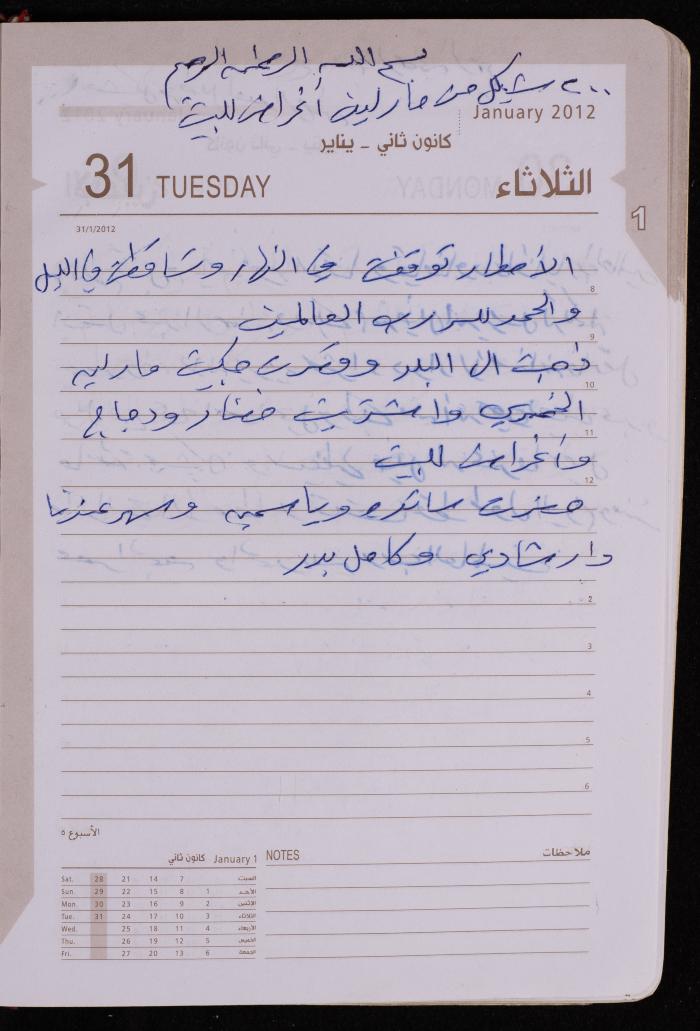 بسم الله الرحمن الرحيم
٢٠٠ شيكل من مارلين أغراض للبيت
January 2012
كانون ثاني - يناير
31 TUESDAY الثلاثاء
1
31/1/2012
الأمطار توقفت في النهار وتساقطت في الليل
8
والحمد لله رب العالمين
9
ذهبت الى البلد وحضرت مارلين
10
واشتريت خضار ودجاج
11
وأغراض للبيت
12
حضرت ساندره وياسمين وسهر عندنا
دار شادي وكامل بدر
2
3
4
5
6
الأسبوع ٥
January 1 كانون ثاني
Sat. 28 21 14 7 السبت
Sun. 29 22 15 8 1 الأحد
Mon. 30 23 16 9 2 الاثنين
Tue. 31 24 17 10 3 الثلاثاء
Wed. 25 18 11 4 الأربعاء
Thu. 26 19 12 5 الخميس
Fri. 27 20 13 6 الجمعة
NOTES ملاحظات